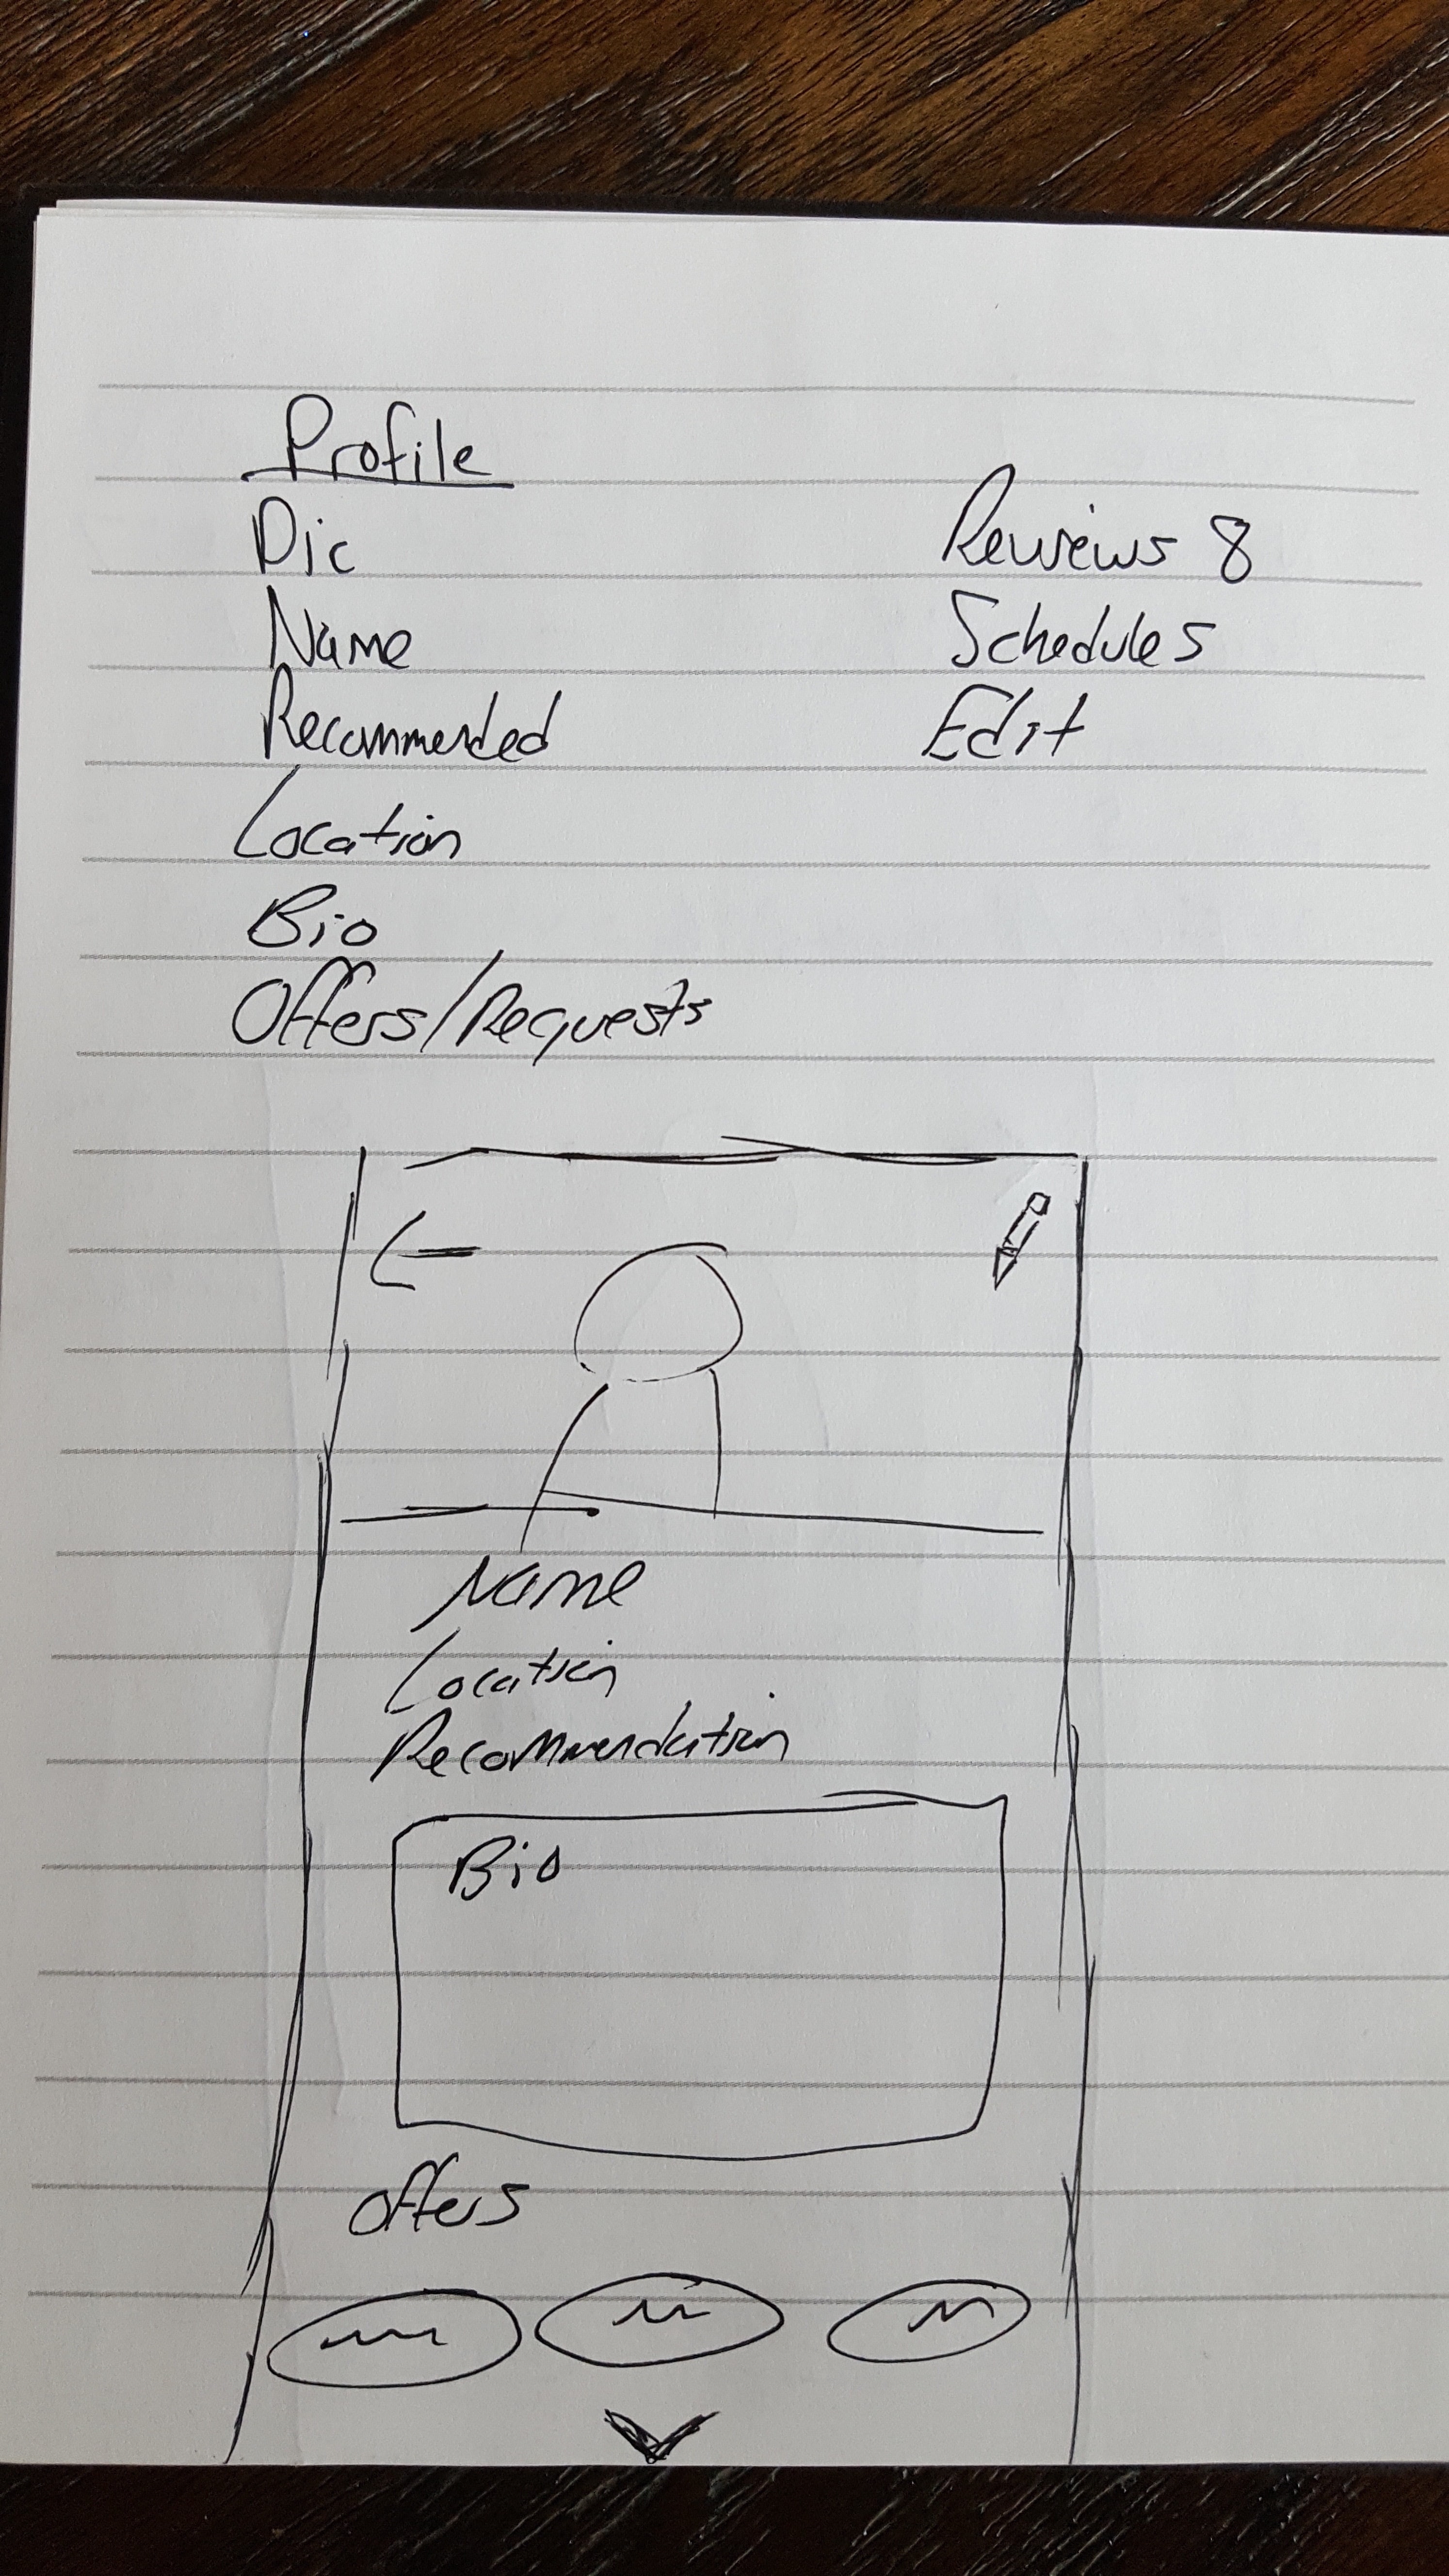 Profile
Pic
Name
Recommended
Location
Bio
Offers/Requests
Reviews 8
Schedules
Edit
Name
Location
Recommendation
Bio
Offers